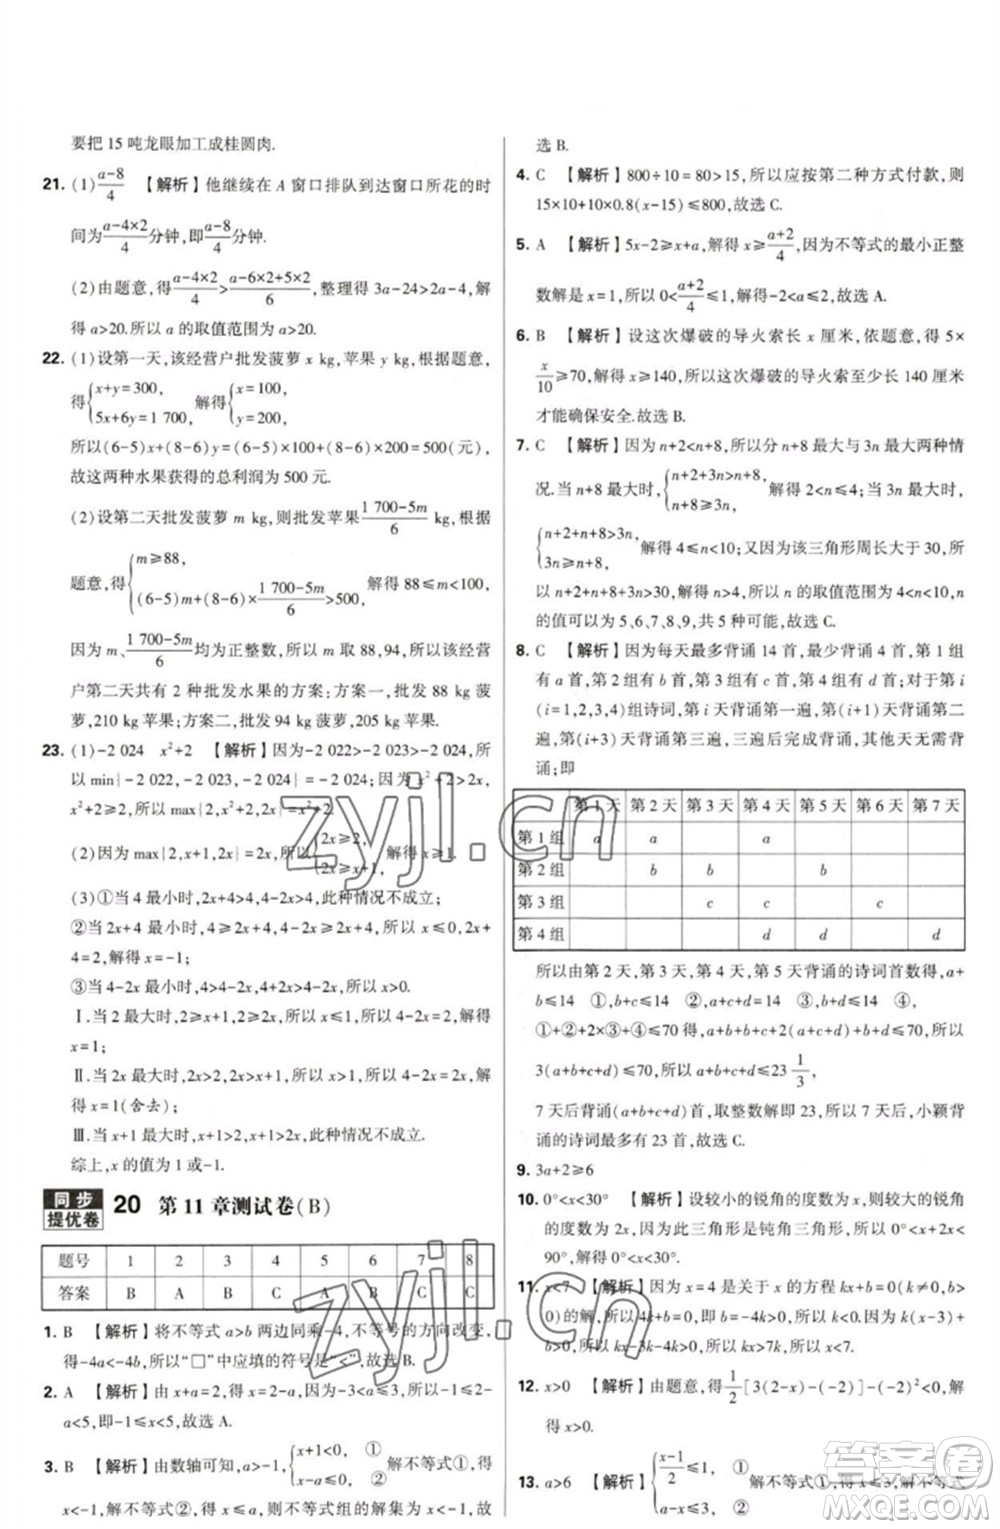 要把 15 吨龙眼加工成桂圆肉.
21. (1) (a-8)/4 【解析】他继续在 A 窗口排队到达窗口所花的时
间为 (a-4×2)/4 分钟,即 (a-8)/4 分钟.
(2)由题意,得 (a-4×2)/4 > (a-6×2+5×2)/6 ,整理得 3a-24>2a-4,解
得 a>20.所以 a 的取值范围为 a>20.
22. (1)设第一天,该经营户批发菠萝 x kg,苹果 y kg,根据题意,
得 {x+y=300, 5x+6y=1 700, 解得 {x=100, y=200.
所以(6-5)x+(8-6)y=(6-5)×100+(8-6)×200=500(元).
故这两种水果获得的总利润为 500 元.
(2)设第二天批发菠萝 m kg,则批发苹果 (1 700-5m)/6 kg,根据
题意,得 {m≥88, (6-5)m+(8-6)×(1 700-5m)/6>500, 解得 88≤m<100.
因为 m、(1 700-5m)/6 均为正整数,所以 m 取 88,94,所以该经营
户第二天共有 2 种批发水果的方案:方案一,批发 88 kg 菠
萝,210 kg 苹果;方案二,批发 94 kg 菠萝,205 kg 苹果.
23. (1)-2 024 x²+2 【解析】因为-2 022>-2 023>-2 024,所
以 min|-2 022,-2 023,-2 024|=-2 024.因为 x²+2>2x,
x²+2≥2,所以 max|2,x²+2,2x|=x²+2.
(2)因为 max|2,x+1,2x|=2x,所以 {2x≥2, 2x≥x+1. 解得 x≥1.
(3)①当 4 最小时,2x+4≥4,4-2x≥4,此种情况不成立.
②当 2x+4 最小时,4≥2x+4,4-2x≥2x+4,所以 x≤0,所以
2x+4=2,解得 x=-1;
③当 4-2x 最小时,4>4-2x,所以 x>0.
Ⅰ.当 2 最大时,2≥x+1,2≥2x,所以 x≤1,所以 4-2x=2,解得
x=1;
Ⅱ.当 2x 最大时,2x>2,2x>x+1,所以 x>1,所以 4-2x=2x,解
得 x=1(舍去);
Ⅲ.当 x+1 最大时,x+1>2,x+1>2x,此种情况不成立.
综上,x 的值为 1 或-1.
同步提优卷 20 第 11 章测试卷(B)
题号 1 2 3 4 5 6 7 8
答案 B A B C A B C C
1. B 【解析】将不等式 a>b 两边同乘-4,不等号的方向改变,
得-4a<-4b,所以“□”中应填的符号是“<”,故选 B.
2. A 【解析】由 x+a=2,得 x=2-a.因为-3<a≤1,所以 1≤2-
a<5,所以 x 的取值范围是 1≤x<5,故选 A.
3. B 【解析】由数轴可知,a<-1, {x+1<0, ① x-a≤0. ② 解不等式①,得
x<-1,解不等式②,得 x≤a,则不等式组的解集为 x≤a,故
选 B.
4. C 【解析】800÷10=80>15,所以应按第二种方式付款,则
15×10+10×0.8(x-15)≤800,故选 C.
5. A 【解析】5x-2≥x+a,解得 x≥(a+2)/4,因为不等式的最小正整
数解是 x=1,所以 0<(a+2)/4≤1,解得-2<a≤2,故选 A.
6. B 【解析】设这次爆破的导火索长 x 厘米,依题意,得 5×
x/10≥70,解得 x≥140,所以这次爆破的导火索至少长 140 厘米
才能确保安全.故选 B.
7. C 【解析】因为 n+2<n+8,所以分 n+8 最大与 3n 最大两种情
况.当 n+8 最大时, {n+2+3n>n+8, n+8≥3n, 解得 2<n≤4;当 3n 最大时,
{n+2+n+8>3n, 3n≥n+8, 解得 4≤n<10;又因为该三角形周长大于 30,所
以 n+2+n+8+3n>30,解得 n>4,所以 n 的取值范围 4<n<10.n
的值可以为 5、6、7、8、9,共 5 种可能,故选 C.
8. C 【解析】因为每天最多背诵 14 首,最少背诵 4 首,第 1 组
有 a 首,第 2 组有 b 首,第 3 组有 c 首,第 4 组有 d 首;对于第 i
(i=1,2,3,4)组诗词,第 i 天背诵第一遍,第(i+1)天背诵第二
遍,第(i+3)天背诵第三遍,三遍后完成背诵,其他天无需背
诵;即
第 1 天 第 2 天 第 3 天 第 4 天 第 5 天 第 6 天 第 7 天
第 1 组 a a a
第 2 组 b b b
第 3 组 c c c
第 4 组 d d d
所以由第 2 天,第 3 天,第 4 天,第 5 天背诵的诗词首数得,a+
b≤14 ①,b+c≤14 ②,a+c+d≤14 ③,b+d≤14 ④,
①+②+2×③+④≤70 得 3a+3b+3c+3d≤70,
3(a+b+c+d)≤70,所以 a+b+c+d≤23 1/3,
7 天后背诵(a+b+c+d)首,取整数解即 23 首,所以,小颖背
诵的诗词最多有 23 首,故选 C.
9. 3a+2≥6
10. 0°<x<30° 【解析】设较小的锐角的度数为 x,则较大的锐角
的度数为 2x,因为此三角形是钝角三角形,所以 0°<x+2x<
90°,解得 0°<x<30°.
11. x<7 【解析】因为 x=4 是关于 x 的方程 kx+b=0(k≠0,b>
0)的解,所以 4k+b=0,即 b=-4k>0,所以 k<0,因为 k(x-3)+
b>0,所以 kx-3k-4k>0,所以 kx>7k,所以 x<7.
12. x>0 【解析】由题意,得 1/2[3(2-x)-(-2)]-(-2)<6,解
得 x>0.
13. a>6 【解析】 {(x-1)/2≤1, ① a-x≤3, ② 解不等式①,得 x≤3,解不等式
zyjl.cn
zyjl.cn
答案圈
MXQE.COM